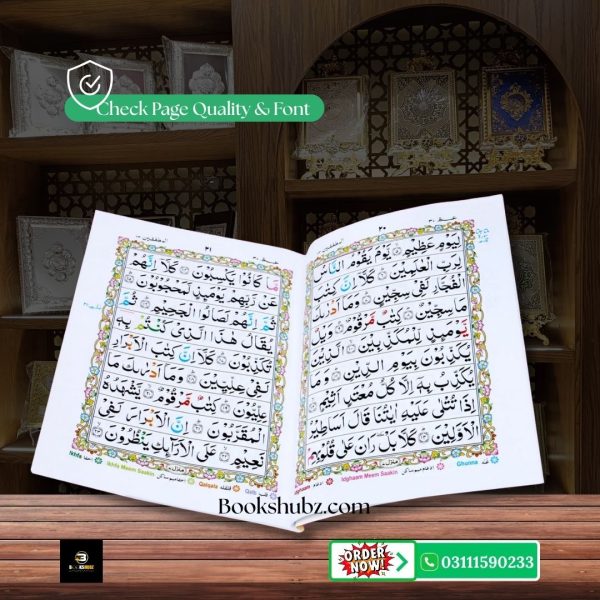 Check Page Quality & Font
٢٠
لِيَوْمٍ عَظِيْمٍ ۝ يَّوْمَ يَقُوْمُ النَّاسُ
لِرَبِّ الْعٰلَمِيْنَ ۝ كَلَّاۤ اِنَّ كِتٰبَ
الْفُجَّارِ لَفِيْ سِجِّيْنٍ ۝ وَمَاۤ اَدْرٰىكَ
مَا سِجِّيْنٌ ۝ كِتٰبٌ مَّرْقُوْمٌ ۝ وَيْلٌ
يَّوْمَىِٕذٍ لِّلْمُكَذِّبِيْنَ ۝ الَّذِيْنَ
يُكَذِّبُوْنَ بِيَوْمِ الدِّيْنِ ۝ وَمَا
يُكَذِّبُ بِهٖۤ اِلَّا كُلُّ مُعْتَدٍ اَثِيْمٍ ۝
اِذَا تُتْلٰى عَلَيْهِ اٰيٰتُنَا قَالَ اَسَاطِيْرُ
الْاَوَّلِيْنَ ۝ كَلَّا بَلْ رَانَ عَلٰى قُلُوْبِهِمْ
Idghaam Meem Saakin ادغام میم ساکن Ghunna غنہ
٢١
مَّا كَانُوْا يَكْسِبُوْنَ ۝ كَلَّاۤ اِنَّهُمْ
عَنْ رَّبِّهِمْ يَوْمَىِٕذٍ لَّمَحْجُوْبُوْنَ ۝
ثُمَّ اِنَّهُمْ لَصَالُوا الْجَحِيْمِ ۝ ثُمَّ
يُقَالُ هٰذَا الَّذِيْ كُنْتُمْ بِهٖ
تُكَذِّبُوْنَ ۝ كَلَّاۤ اِنَّ كِتٰبَ الْاَبْرَارِ
لَفِيْ عِلِّيِّيْنَ ۝ وَمَاۤ اَدْرٰىكَ مَا
عِلِّيُّوْنَ ۝ كِتٰبٌ مَّرْقُوْمٌ ۝ يَّشْهَدُهُ
الْمُقَرَّبُوْنَ ۝ اِنَّ الْاَبْرَارَ لَفِيْ
نَعِيْمٍ ۝ عَلَى الْاَرَآىِٕكِ يَنْظُرُوْنَ ۝
Ikhfa اخفا Ikhfa Meem Saakin اخفا میم ساکن Qalqala قلقلہ
Bookshubz.com
Bookshubz.com
ORDER NOW!
03111590233